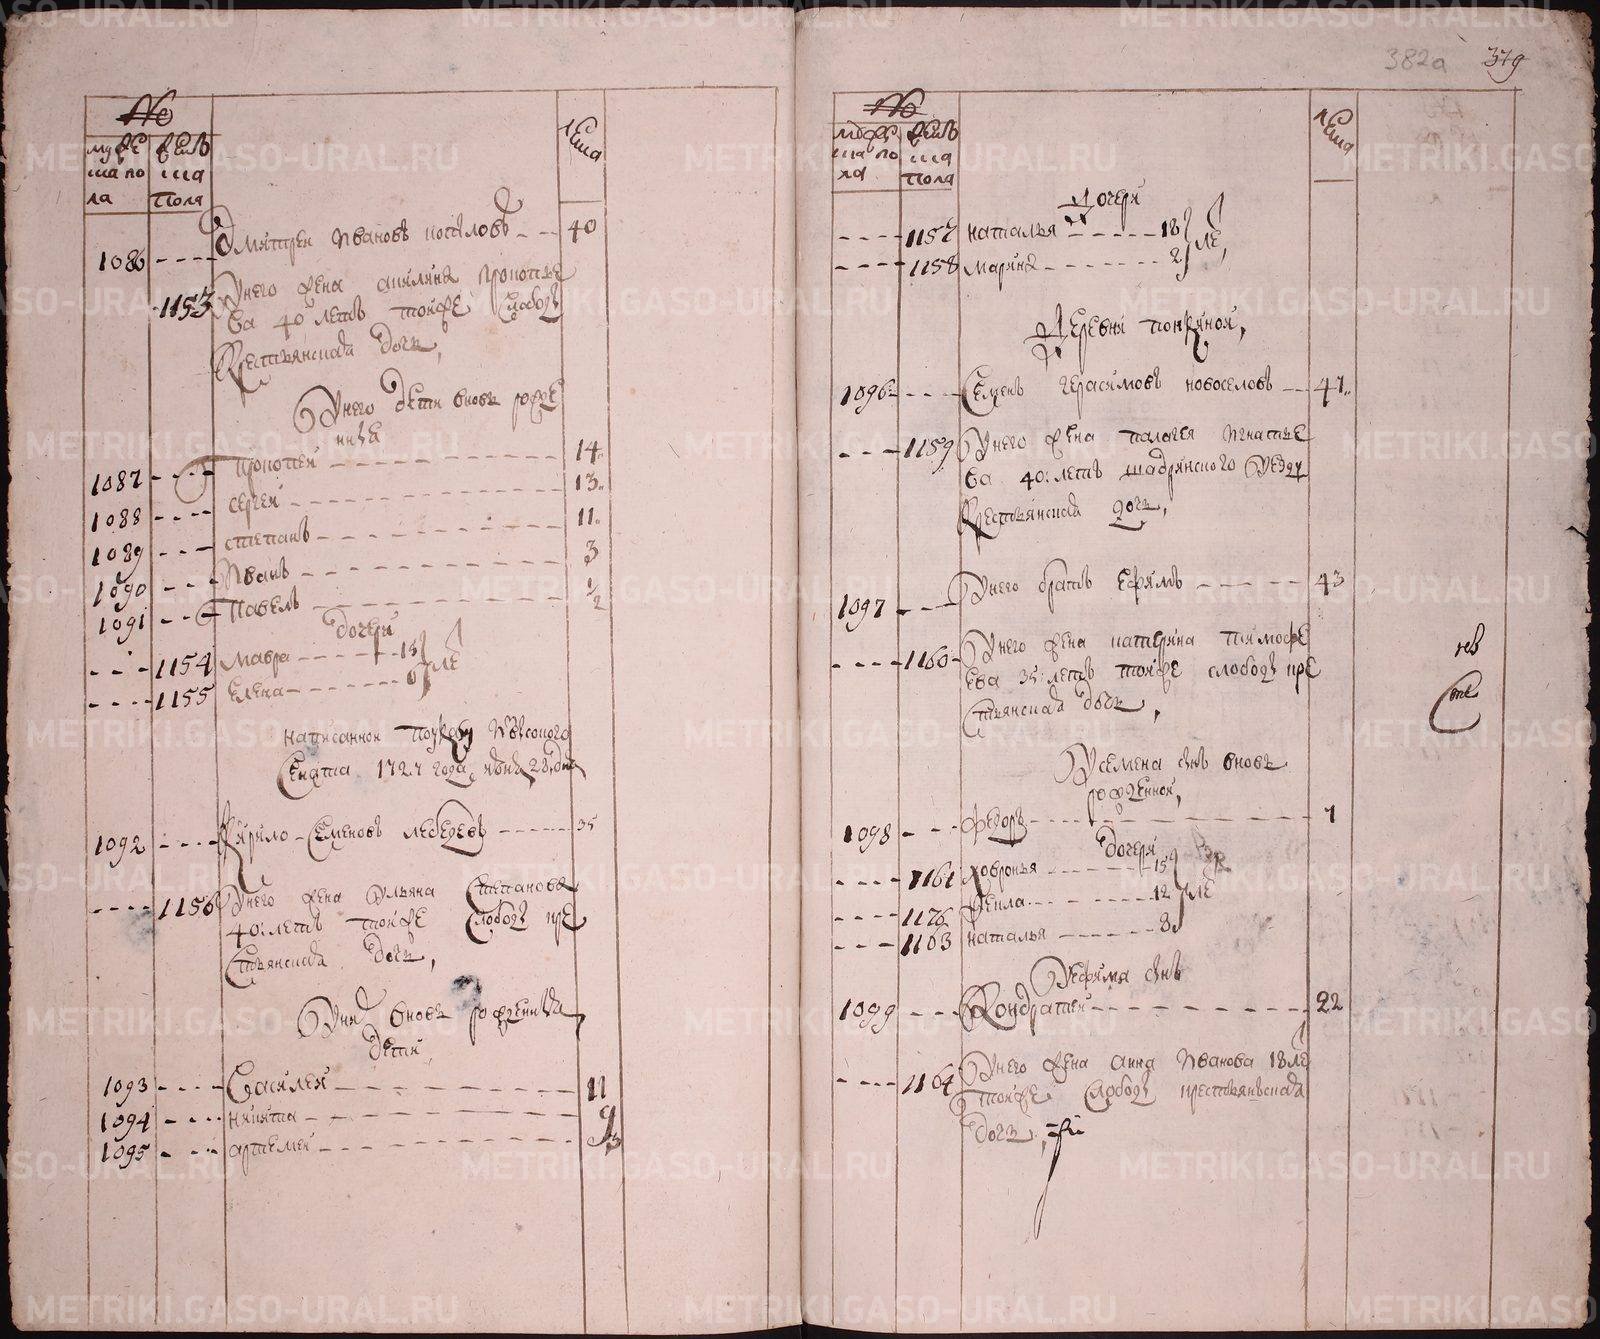 №
муже
ска по
ла
женъ
ска
пола
лета
1086 Дмитреи Ивановъ 40
1153 У него жена Прокопье
ва 40 летъ тойже слободы
крестьянская дочь,
У него дети вновь рожде
нныя
1087 Прокопеи 14
1088 Сергеи 13
1089 Степанъ 11
1090 Иванъ 3
1091 Павелъ 1/2
дочери
1154 Мавра 15
1155 Елена 6 ле
Написанной по указу
Сената 1727 года
1092 Кирило Семеновъ Лебедевъ 35
1156 У него жена Ульяна Степанова
40 летъ тойже слободы кре
стьянская дочь,
У них вновь рожденныя
дети,
1093 Василеи 11
1094 Никита 9
1095 Артемеи 3
382а 379
№
муже
ска по
ла
женъ
ска
пола
лета
Дочери
1157 Наталья 18
1158 Марина 2 ле
Деревни
1096 Семенъ Герасимовъ Новоселовъ 47
1159 У него жена Палагея Игнатье
ва 40 летъ Шадринского уезду
крестьянская дочь,
1097 У него братъ Ефимъ 43
1160 У него жена Катерина Тимофе
ева 35 летъ тойже слободы кре
стьянская дочь,
У Семена снъ вновь
рожденной,
1098 Федоръ 1
дочери
1161 Ховронья 15
1126 Фекла 12 ле
1163 Наталья 8
У Ефима снъ
1099 Кондратеи 22
1164 У него жена Анна Иванова 18 ле
тойже слободы крестьянская
дочь
METRIKI.GASO-URAL.RU